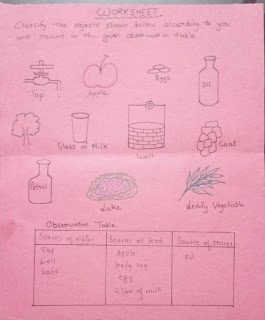 WORKSHEET
Classify the objects shown below according to you
and record in the given observation table
Tap
Apple
Eggs
Oil
Glass of Milk
Well
Coal
Petrol
Lake
Leafy Vegetable
Observation Table
Source of water
Source of food
Source of energy
Tap
Apple
Oil
Well
leafy veg
Lake
egg
Glass of milk